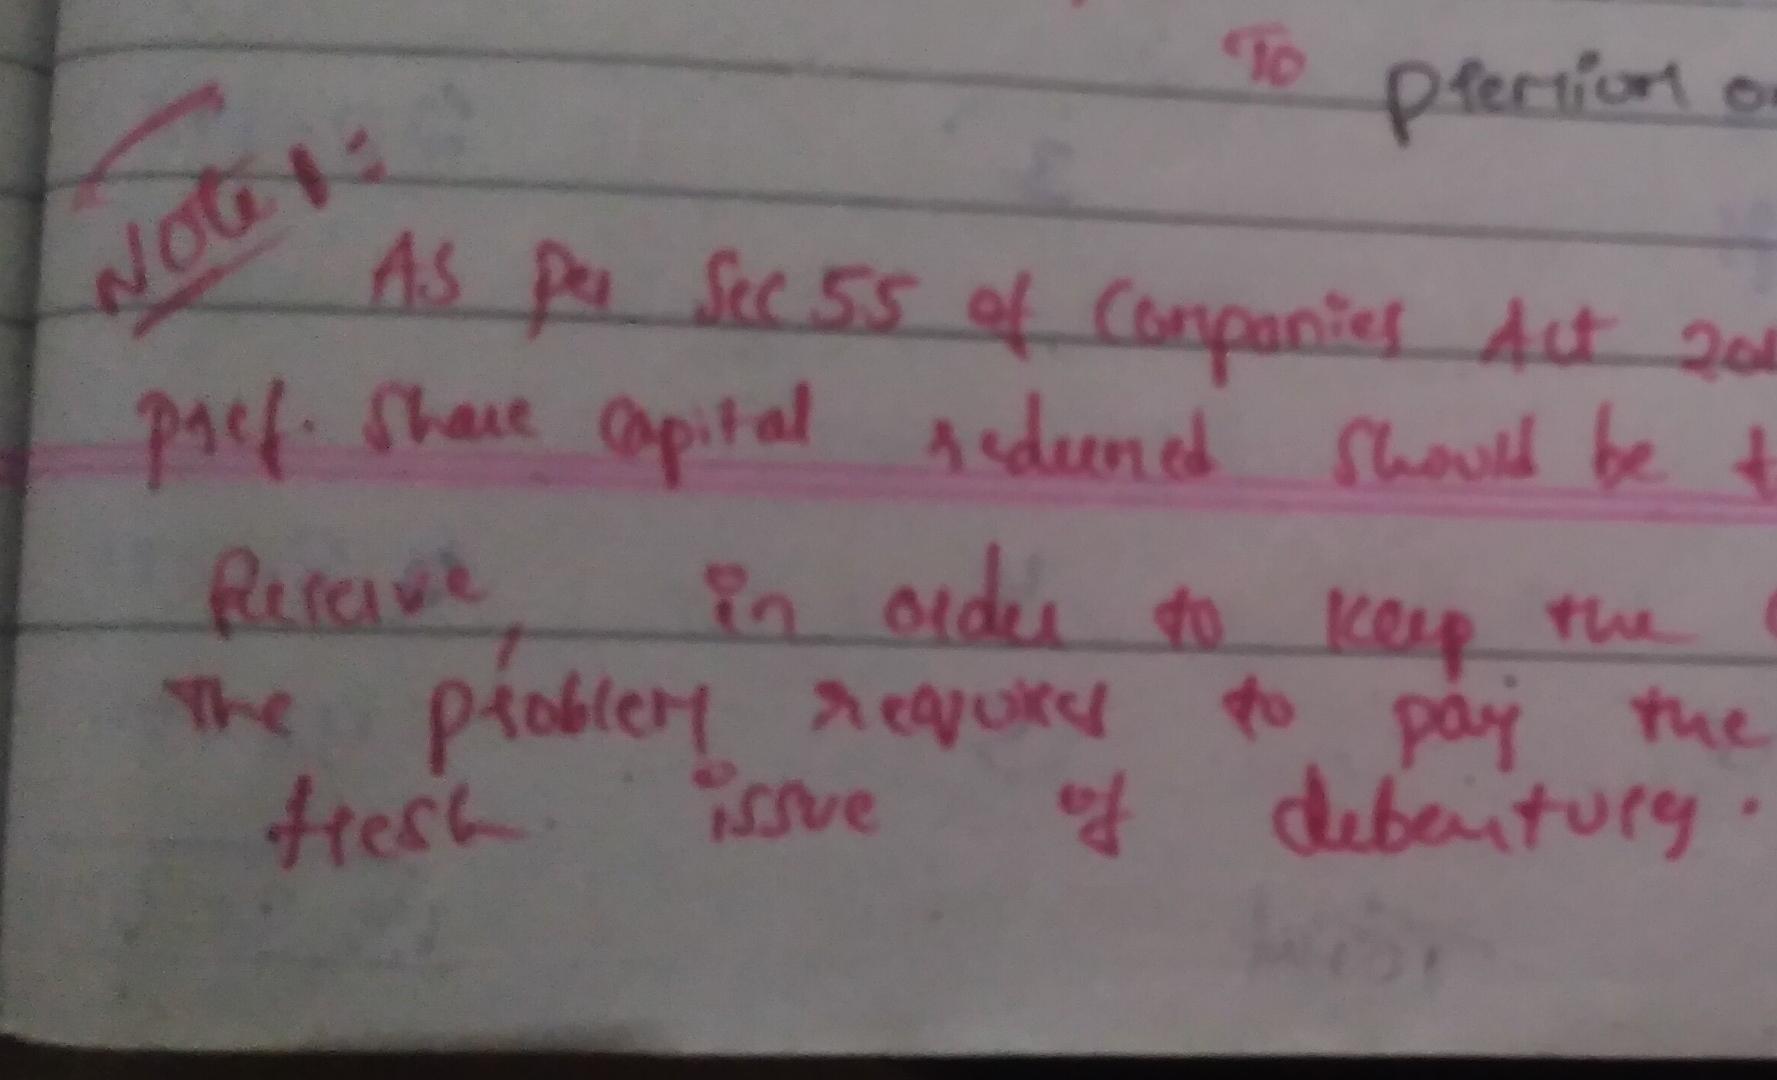 To premium o
Note 1:
As per Sec 55 of Companies Act 201
pref. Share Capital redeemed should be t
Reserve, in order to keep the
The problem required to pay the
fresh issue of debentures.